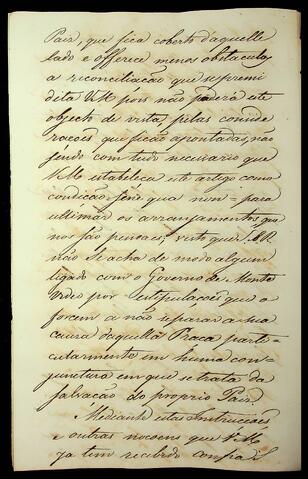 Paiz, que fica coberto daquelle
lado e offerece menos obstaculos
a reconciliação que se premedita
dita VM pois não poderá este
objecto de vista, pelas conside
racoes que ficão apontadas, não
sendo com tudo necessario que
VM estabeleca este artigo como
condição sine qua non = para
ultimar os arranjamentos que
nos são precisos; visto que SAR
não se acha de modo algum
ligado com o Governo de Monte
Video por estipulações que o
forcem a não separar a sua
causa daquella Praça parti-
cularmente em huma con-
junctura em que se trata da
salvação do proprio Paiz.
Mediante estas Instrucções
e outras nocoens que VM
ja tem recebido confia S